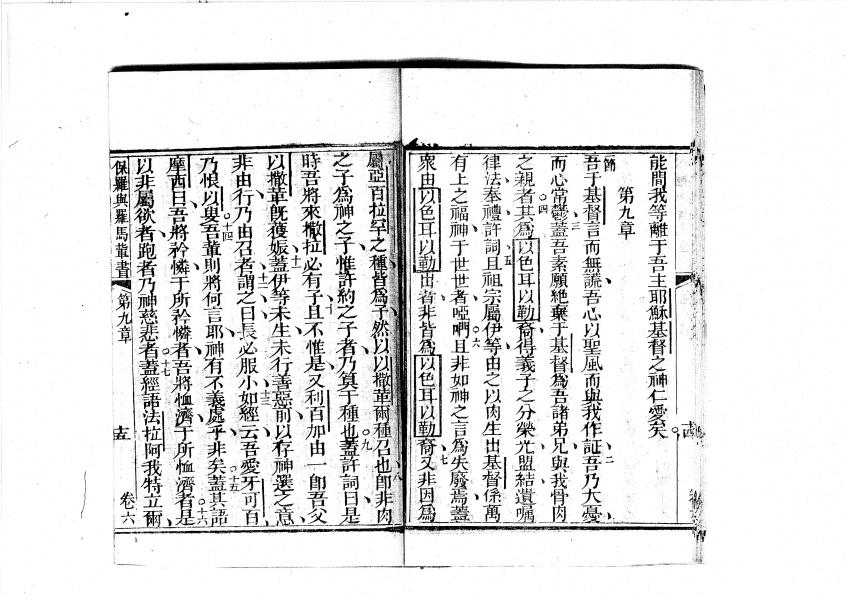 能間我等離于吾主耶穌基督之神仁愛矣
第九章
節
吾于基督言而無謊吾心以聖風而與我作証吾乃大憂
而心常鬱蓋吾素願絶棄于基督爲吾諸弟兄與我骨肉
之親者其爲以色耳以勒裔得義子之分榮光盟結遺囑
律法奉禮許詞且祖宗屬伊等由之以肉生出基督係萬
有上之福神于世世者啞㖿且非如神之言爲失廢焉蓋
衆由以色耳以勒出者非皆爲以色耳以勒裔又非因爲
屬亞百拉罕之種皆爲子然以以撒革爾種召也卽非肉
之子爲神之子惟許約之子者乃算于種也蓋許詞曰是
時吾將來撒拉必有子且不惟是又利百加由一卽吾父
以撒革旣獲娠蓋伊等未生未行善惡前以存神選之意
非由行乃由召者謂之曰長必服小如經云吾愛牙可百
乃恨以叟吾輩則將何言耶神有不義處乎非矣蓋其語
摩西曰吾將矜憐于所矜憐者吾將恤濟于所恤濟者是
以非屬欲者跑者乃神慈悲者蓋經語法拉阿我特立爾
保羅與羅馬輩書
第九章
卷六